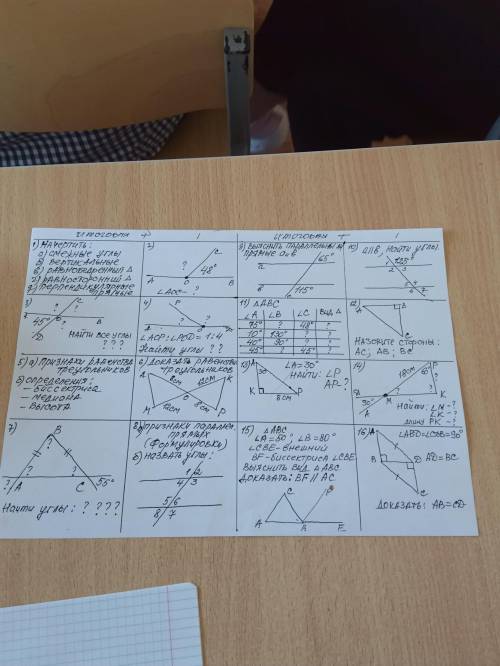 Итоговая т 1
1) Начертить:
а) смежные углы
б) вертикальные
в) равнобедренный Δ
г) равносторонний Δ
д) перпендикулярные прямые
2)
C
? 48°
A O B
∠AOC - ?
3)
C
?
A O B
45° ?
D
Найти все углы
? ? ?
4)
P
? ?
∠AOP : ∠POD = 1:4
Найти углы ? ?
5) а) Признаки равенства
треугольников
б) определения:
– биссектриса
– медиана
– высота
6) Доказать равенство
треугольников
A K
6см 12см
12см 6см
M O P
7)
B
?
? ?
A C 55°
Найти углы: ? ? ? ?
8) Признаки паралл.
прямых
(формулировки)
б) назвать углы:
1 2
4 3
5 6
8 7
Итоговая т 1
9) Выяснить параллельны ли
прямые a и b
65°
a
b
115°
10) a∥b, найти углы.
125°
2 3
5 4
6 7
11) ΔABC
∠A ∠B ∠C Вид Δ
75° ? 48° ?
10° 130° ? ?
40° 90° ? ?
45° ? 45° ?
12)
A Δ
C
Назовите стороны:
AC; AB; BC
13)
A
30°
∠A = 30°
Найти: ∠P
AP - ?
K P
8см
14)
18см 60° ?
M K
30°
A
Найти: ∠N - ?
∠K - ?
длину PK - ?
15) ΔABC
∠A = 50°, ∠B = 80°
∠CBE - внешний
BF - биссектриса ∠CBE
Выяснить вид ΔABC
Доказать: BF ∥ AC
C F
A B E
16) A
∠ABD = ∠CDB = 90°
B D
AD = BC
C
Доказать: AB = CD